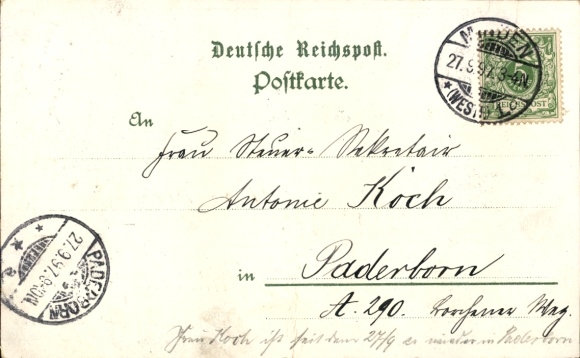 Deutsche Reichspost.
Postkarte.
MINDEN
27.9.97.3-4N.
* (WESTF.) 1.
REICHSPOST
An
Frau Steuer-Sekretair
Antonie Koch
in Paderborn
A. 290. Borchener Weg.
PADERBORN
27.9.97.
Frau Koch ist seit dem 27/9 wieder in Paderborn